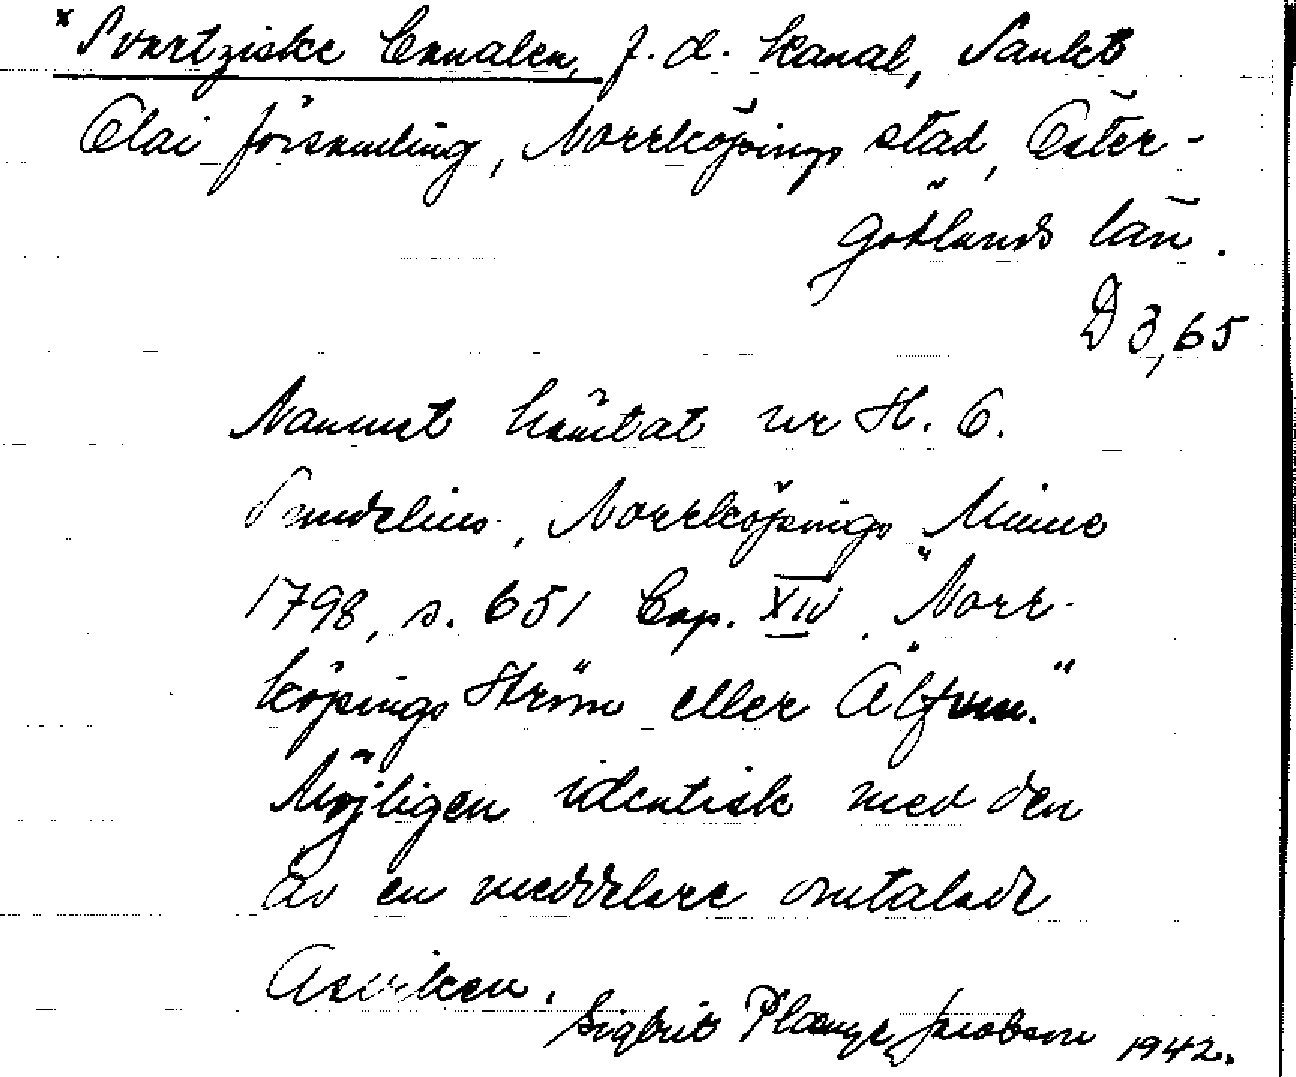 * Svartziske Canalen, f.d. kanal, Sankt
Olai församling, Norrköpings stad, Öster-
götlands län.
D 3,65
Namnet hämtat ur H. O.
Sundelius, Norrköpings Minne
1798, s. 651 Cap. XIV. "Norr-
köpings Ström eller Älfven."
Möjligen identisk med den
av en meddelare omtalade
Asviken.
Sigbrit Plænge Jacobson 1942.